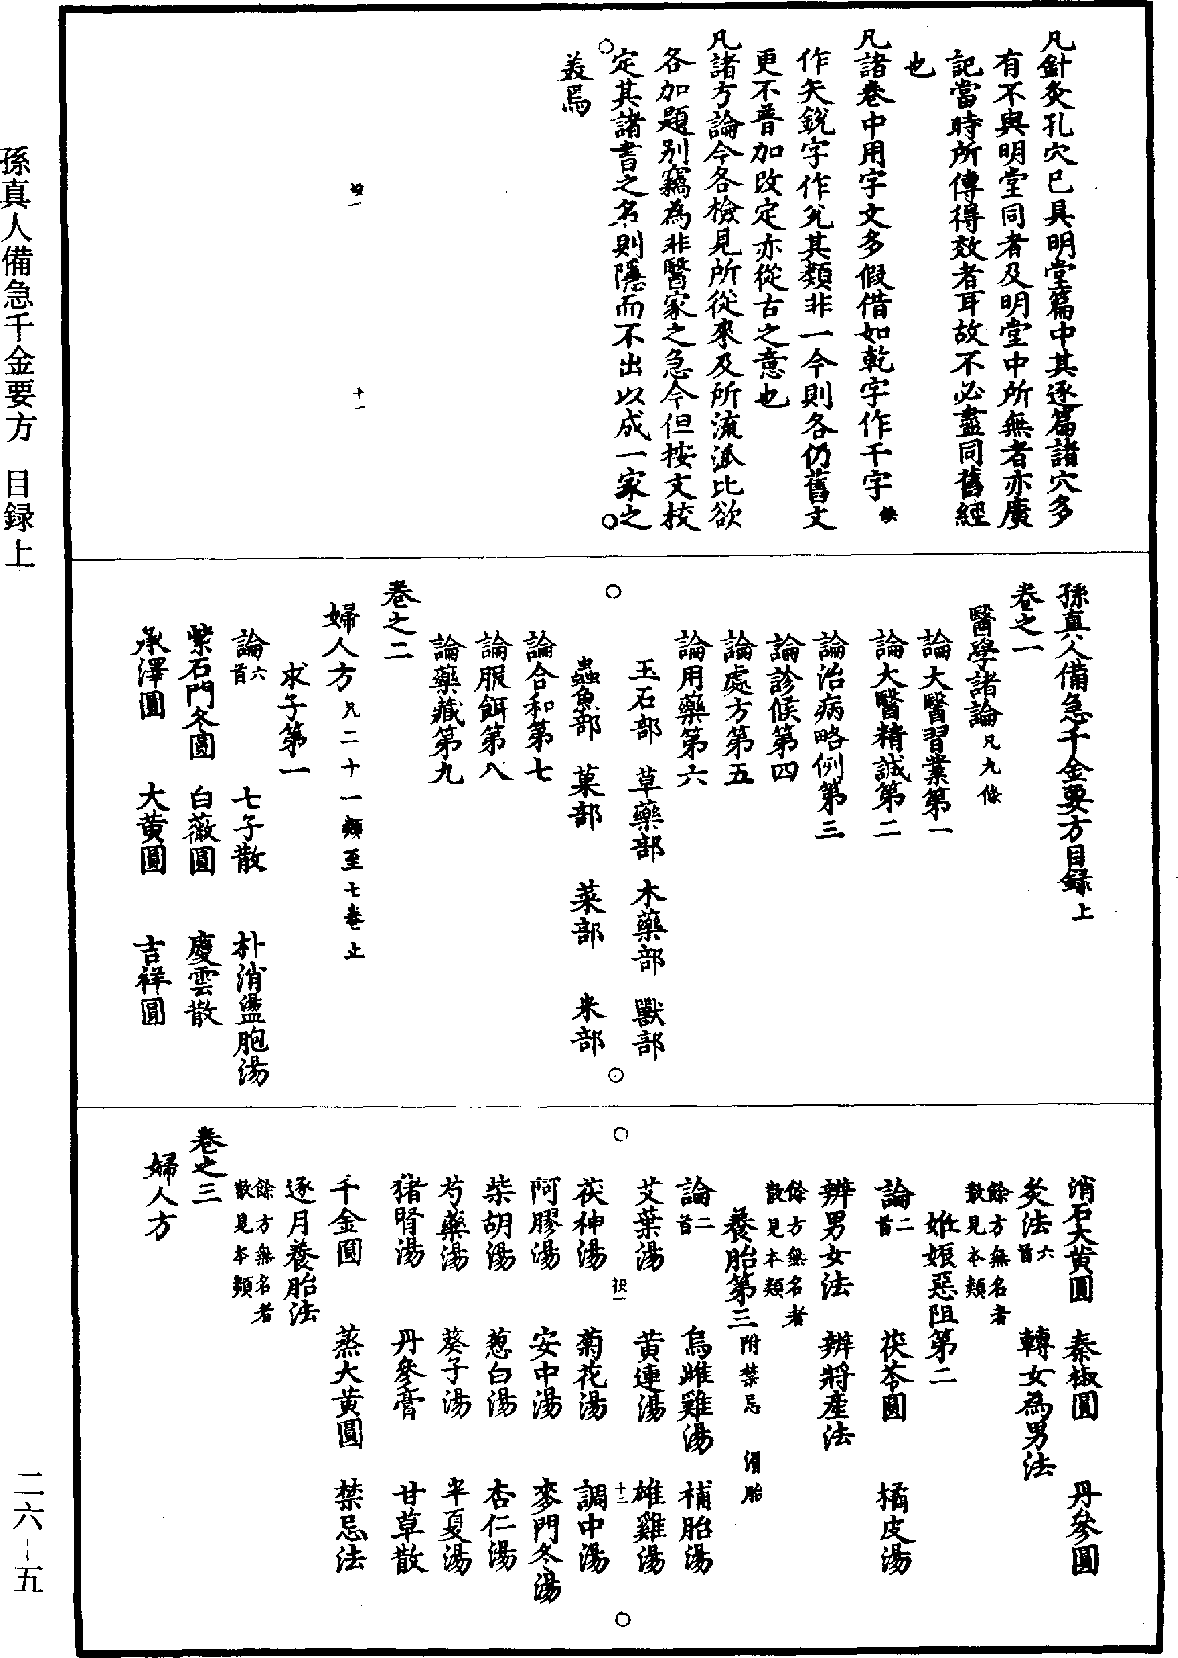 孫真人備急千金要方　目録上
二六—五
凡針灸孔穴已具明堂篇中其逐篇諸穴多
有不與明堂同者及明堂中所無者亦廣
記當時所傳得效者耳故不必盡同舊經
也
凡諸卷中用字文多假借如乾字作干字
作矢銳字作兊其類非一今則各仍舊文
更不普加改定亦從古之意也
凡諸方論今各檢見所從來及所流派比欲
各加題別竊為非醫家之急今但按文校
定其諸書之名則隱而不出以成一家之
義焉
十一
孫真人備急千金要方目録上
卷之一
醫學諸論凡九條
論大醫習業第一
論大醫精誠第二
論治病略例第三
論診候第四
論處方第五
論用藥第六
玉石部　草藥部　木藥部　獸部
蟲魚部　菓部　菜部　米部
論合和第七
論服餌第八
論藥藏第九
卷之二
婦人方凡二十一類至七卷止
求子第一
論六首　七子散　朴消盪胞湯
紫石門冬圓　白薇圓　慶雲散
承澤圓　大黄圓　吉祥圓
消石大黄圓　秦椒圓　丹參圓
灸法六首　轉女為男法
餘方無名者散見本類
姙娠惡阻第二
論二首　茯苓圓　橘皮湯
辨男女法　辨將產法
餘方無名者散見本類
養胎第三附禁忌　滑胎
論二首　烏雌雞湯　補胎湯
艾葉湯　黄連湯　雄雞湯
十二
茯神湯　菊花湯　調中湯
阿膠湯　安中湯　麥門冬湯
柴胡湯　葱白湯　杏仁湯
芍藥湯　葵子湯　半夏湯
猪腎湯　丹參膏　甘草散
千金圓　蒸大黄圓　禁忌法
逐月養胎法
餘方無名者散見本類
卷之三
婦人方